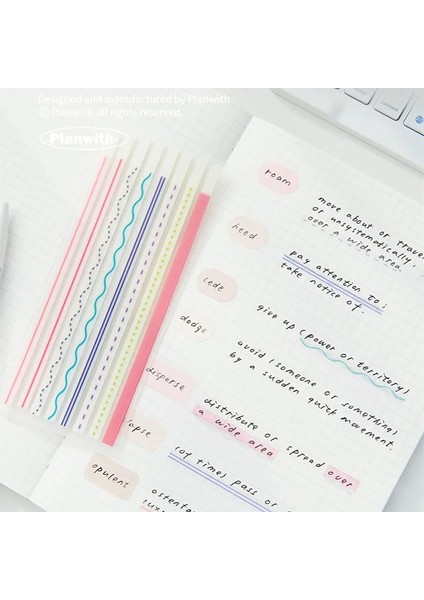 Designed and manufactured by Planwith
ⓒ Planwith.all rights reserved.
Planwith-
roam
move about or
or unsystematically,
over a wide area
heed
pay attention to;
take notice of
cede
give up (power or territory)
dodge
avoid (someone or something)
by a sudden quick movement.
disperse
distribute or spread over
a wide area
(of time) pass or
opulent